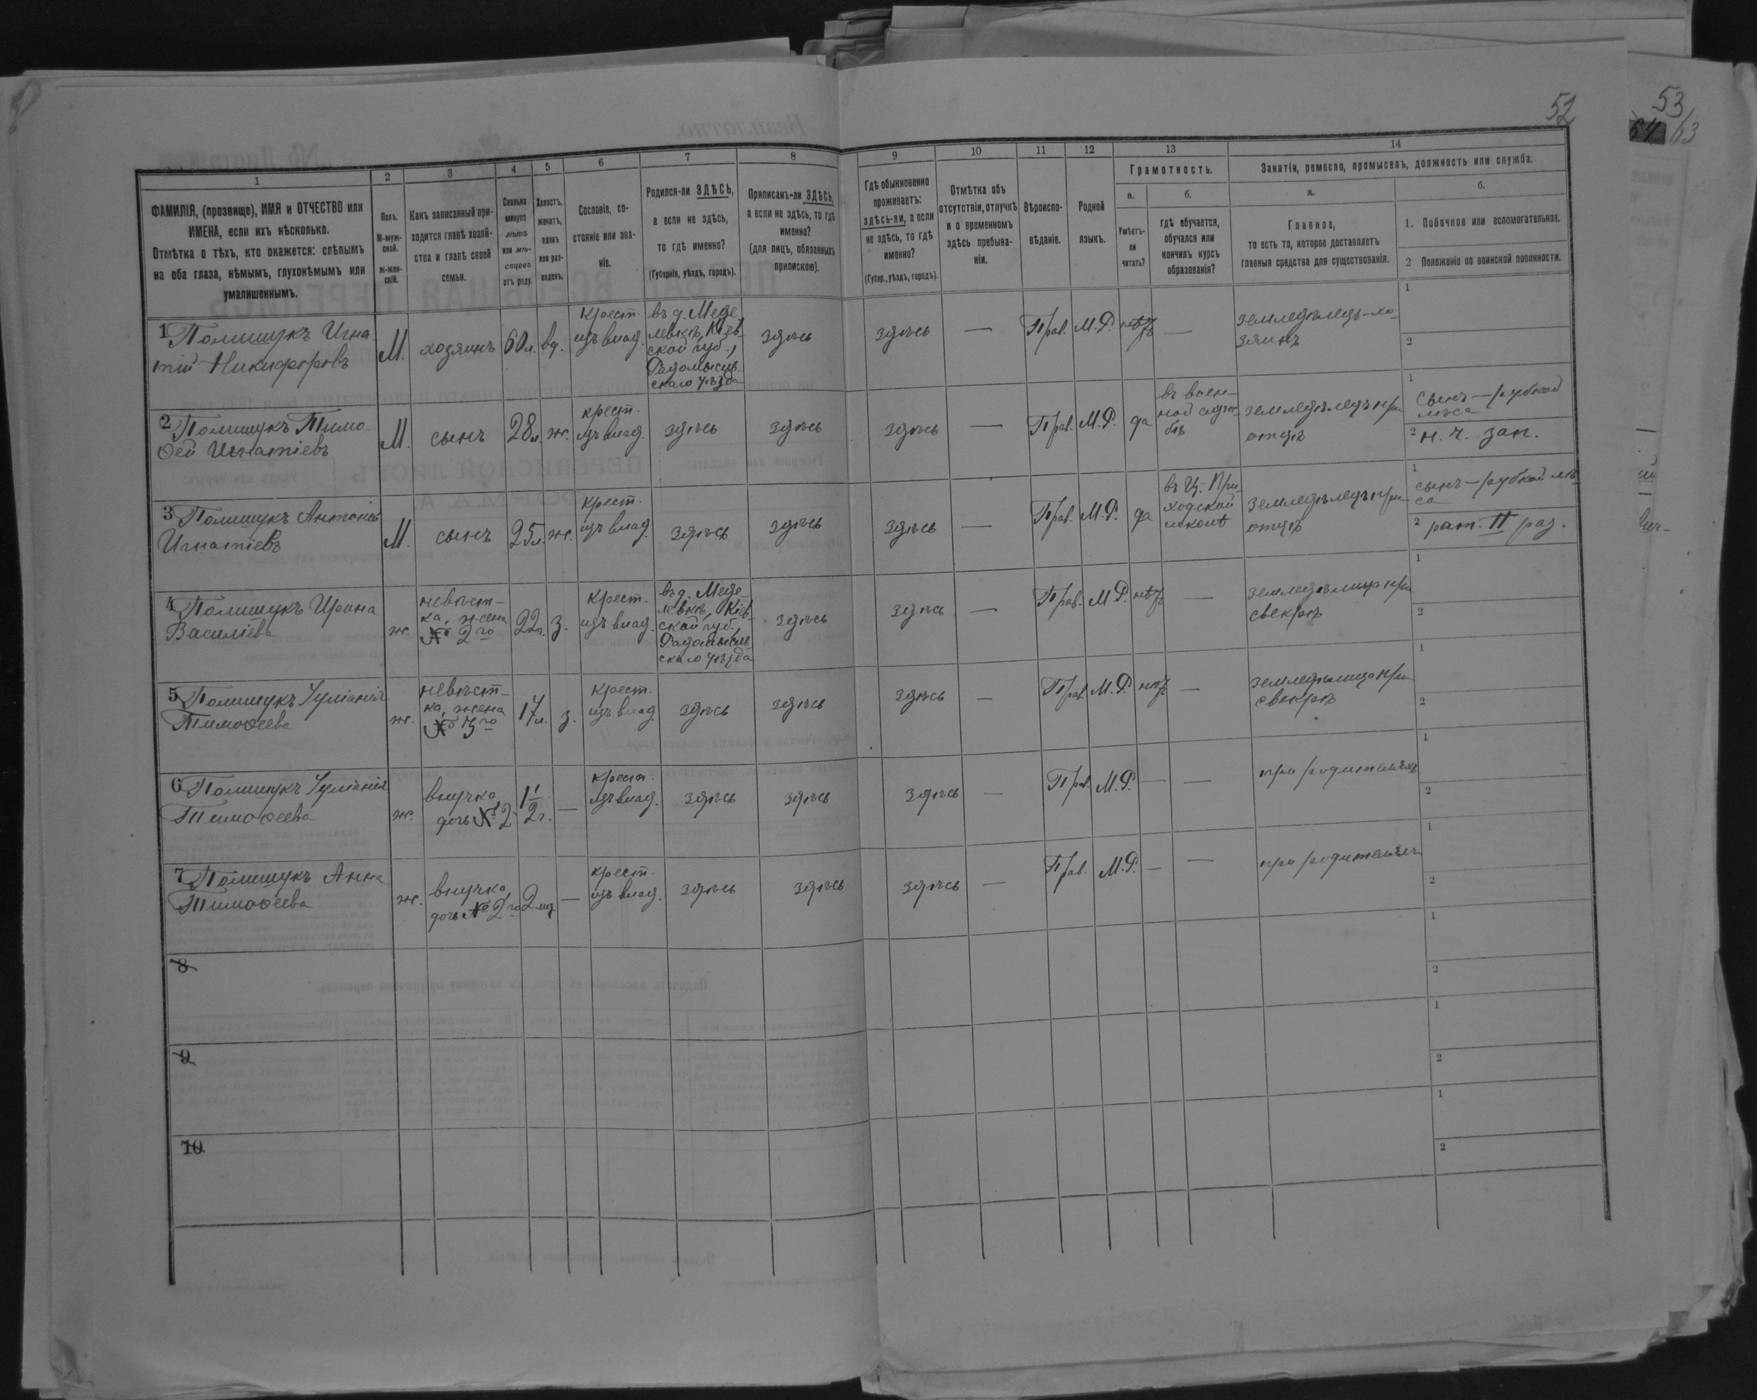 52
53
63
1 2 3 4 5 6 7 8 9 10 11 12 13 14
ФАМИЛІЯ, (прозвище), ИМЯ и ОТЧЕСТВО или
ИМЕНА, если ихъ нѣсколько.
Отмѣтка о тѣхъ, кто окажется: слѣпымъ
на оба глаза, нѣмымъ, глухонѣмымъ или
умалишеннымъ.
Полъ.
М-муж-
ской.
Ж-жен-
скій.
Какъ записанный при-
ходится главѣ хозяй-
ства и главѣ своей
семьи.
Сколько
минуло
лѣтъ
или мѣ-
сяцевъ
отъ роду.
Холостъ,
женатъ,
вдовъ
или раз-
веденъ.
Сословіе, со-
стояніе или зва-
ніе.
Родился-ли ЗДѢСЬ,
а если не здѣсь,
то гдѣ именно?
(Губернія, уѣздъ, городъ).
Приписанъ-ли ЗДѢСЬ,
а если не здѣсь, то гдѣ
именно?
(для лицъ, обязанныхъ
припискою).
Гдѣ обыкновенно
проживаетъ:
здѣсь-ли, а если
не здѣсь, то гдѣ
именно?
(Губер., уѣздъ, городъ).
Отмѣтка объ
отсутствіи, отлучкѣ
и о временномъ
здѣсь пребыва-
ніи.
Вѣроиспо-
вѣданіе.
Родной
языкъ.
Грамотность.
а.
Умѣетъ-
ли
читать?
б.
гдѣ обучается,
обучался или
кончилъ курсъ
образованія?
Занятіе, ремесло, промыселъ, должность или служба.
а.
Главное,
то есть то, которое доставляетъ
главныя средства для существованія.
б.
1. Побочное или вспомогательное.
2 Положеніе по воинской повинности.
1 Полищукъ Игна-
тій Никифоровъ
М.
хозяинъ
60 л.
вд.
крест.
изъ влад.
въ д. Меде-
левкѣ, Кіев-
ской губ.,
Радомысль-
скаго уѣзда
здѣсь
здѣсь
—
Прав.
М.Р.
нѣтъ
—
земледѣлецъ-хо-
зяинъ
1
2
2 Полищукъ Тимо-
ѳей Игнатіевъ
М.
сынъ
28 л.
ж.
крест.
изъ влад.
здѣсь
здѣсь
здѣсь
—
Прав.
М.Р.
да
въ воен-
ной служ-
бѣ
земледѣлецъ при
отцѣ
1 сынъ — рубкой
лѣса
2 н. ч. зап.
3 Полищукъ Антоній
Игнатіевъ
М.
сынъ
25 л.
ж.
крест.
изъ влад.
здѣсь
здѣсь
здѣсь
—
Прав.
М.Р.
да
въ Ц. При-
ходской
школѣ
земледѣлецъ при
отцѣ
1 сынъ — рубкой лѣ-
са
2 рат. II раз.
4 Полищукъ Ирина
Василіева
ж.
невѣст-
ка, жена
№ 2го
22 г.
з.
крест.
изъ влад.
въ д. Меде-
левкѣ, Кіев-
ской губ.
Радомысль-
скаго уѣзда
здѣсь
здѣсь
—
Прав.
М.Р.
нѣтъ
—
земледѣлица при
свекрѣ
1
2
5 Полищукъ Іуліанія
Тимоѳеева
ж.
невѣст-
ка, жена
№ 3го
17 л.
з.
крест.
изъ влад.
здѣсь
здѣсь
здѣсь
—
Прав.
М.Р.
нѣтъ
—
земледѣлица при
свекрѣ
1
2
6 Полищукъ Іуліанія
Тимоѳеева
ж.
внучка
дочь № 2
1 1/2 г.
—
крест.
изъ влад.
здѣсь
здѣсь
здѣсь
—
Прав.
М.Р.
—
—
при родителяхъ
1
2
7 Полищукъ Анна
Тимоѳеева
ж.
внучка
дочь № 2го
2 мѣс
—
крест.
изъ влад.
здѣсь
здѣсь
здѣсь
—
Прав.
М.Р.
—
—
при родителяхъ
1
2
8
1
2
9
1
2
10
1
2